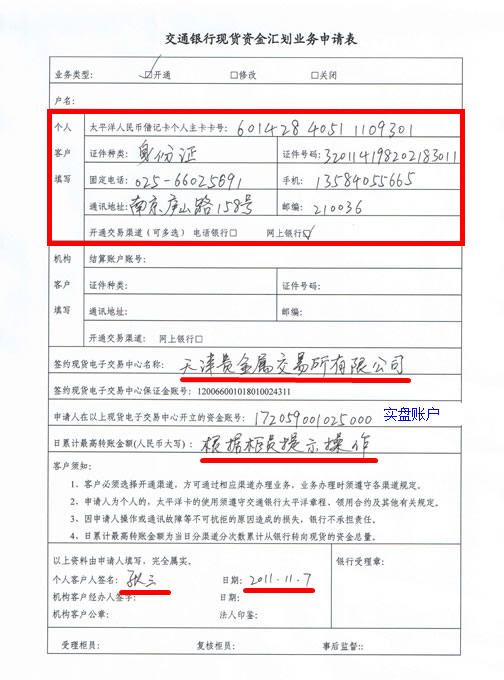 交通银行现货资金汇划业务申请表
业务类型: ☑开通 □修改 □关闭
户名:
个人客户填写
太平洋人民币借记卡个人主卡卡号: 601428 4051 1109301
证件种类: 身份证 证件号码: 320114198202183011
固定电话: 025-66025691 手机: 13584055665
通讯地址: 南京庐山路158号 邮编: 210036
开通交易渠道(可多选) 电话银行□ 网上银行☑
机构客户填写
结算账户账号:
证件种类: 证件号码:
通讯地址: 邮编:
开通交易渠道: 网上银行□
签约现货电子交易中心名称: 天津贵金属交易所有限公司
签约现货电子交易中心保证金账号: 120066001018010024311
申请人在以上现货电子交易中心开立的资金账号: 172059001025000 实盘账户
日累计最高转账金额(人民币大写): 根据柜员提示操作
客户须知:
1、客户必须选择开通渠道,方可通过相应渠道办理业务,业务办理时须遵守各渠道规定。
2、申请人为个人的,太平洋卡的使用须遵守交通银行太平洋章程、领用合约及其他有关规定。
3、因申请人操作或通讯故障等不可抗拒的原因造成的损失,银行不承担责任。
4、日累计最高转账金额为当日分渠道分次数累计从银行转向现货的资金总量。
以上资料由申请人填写,完全属实。 银行受理章:
个人客户人签名: 张三 日期: 2011.11.7
机构客户经办人签字: 日期:
机构客户公章: 法人印鉴:
受理柜员: 复核柜员: 事后监督::